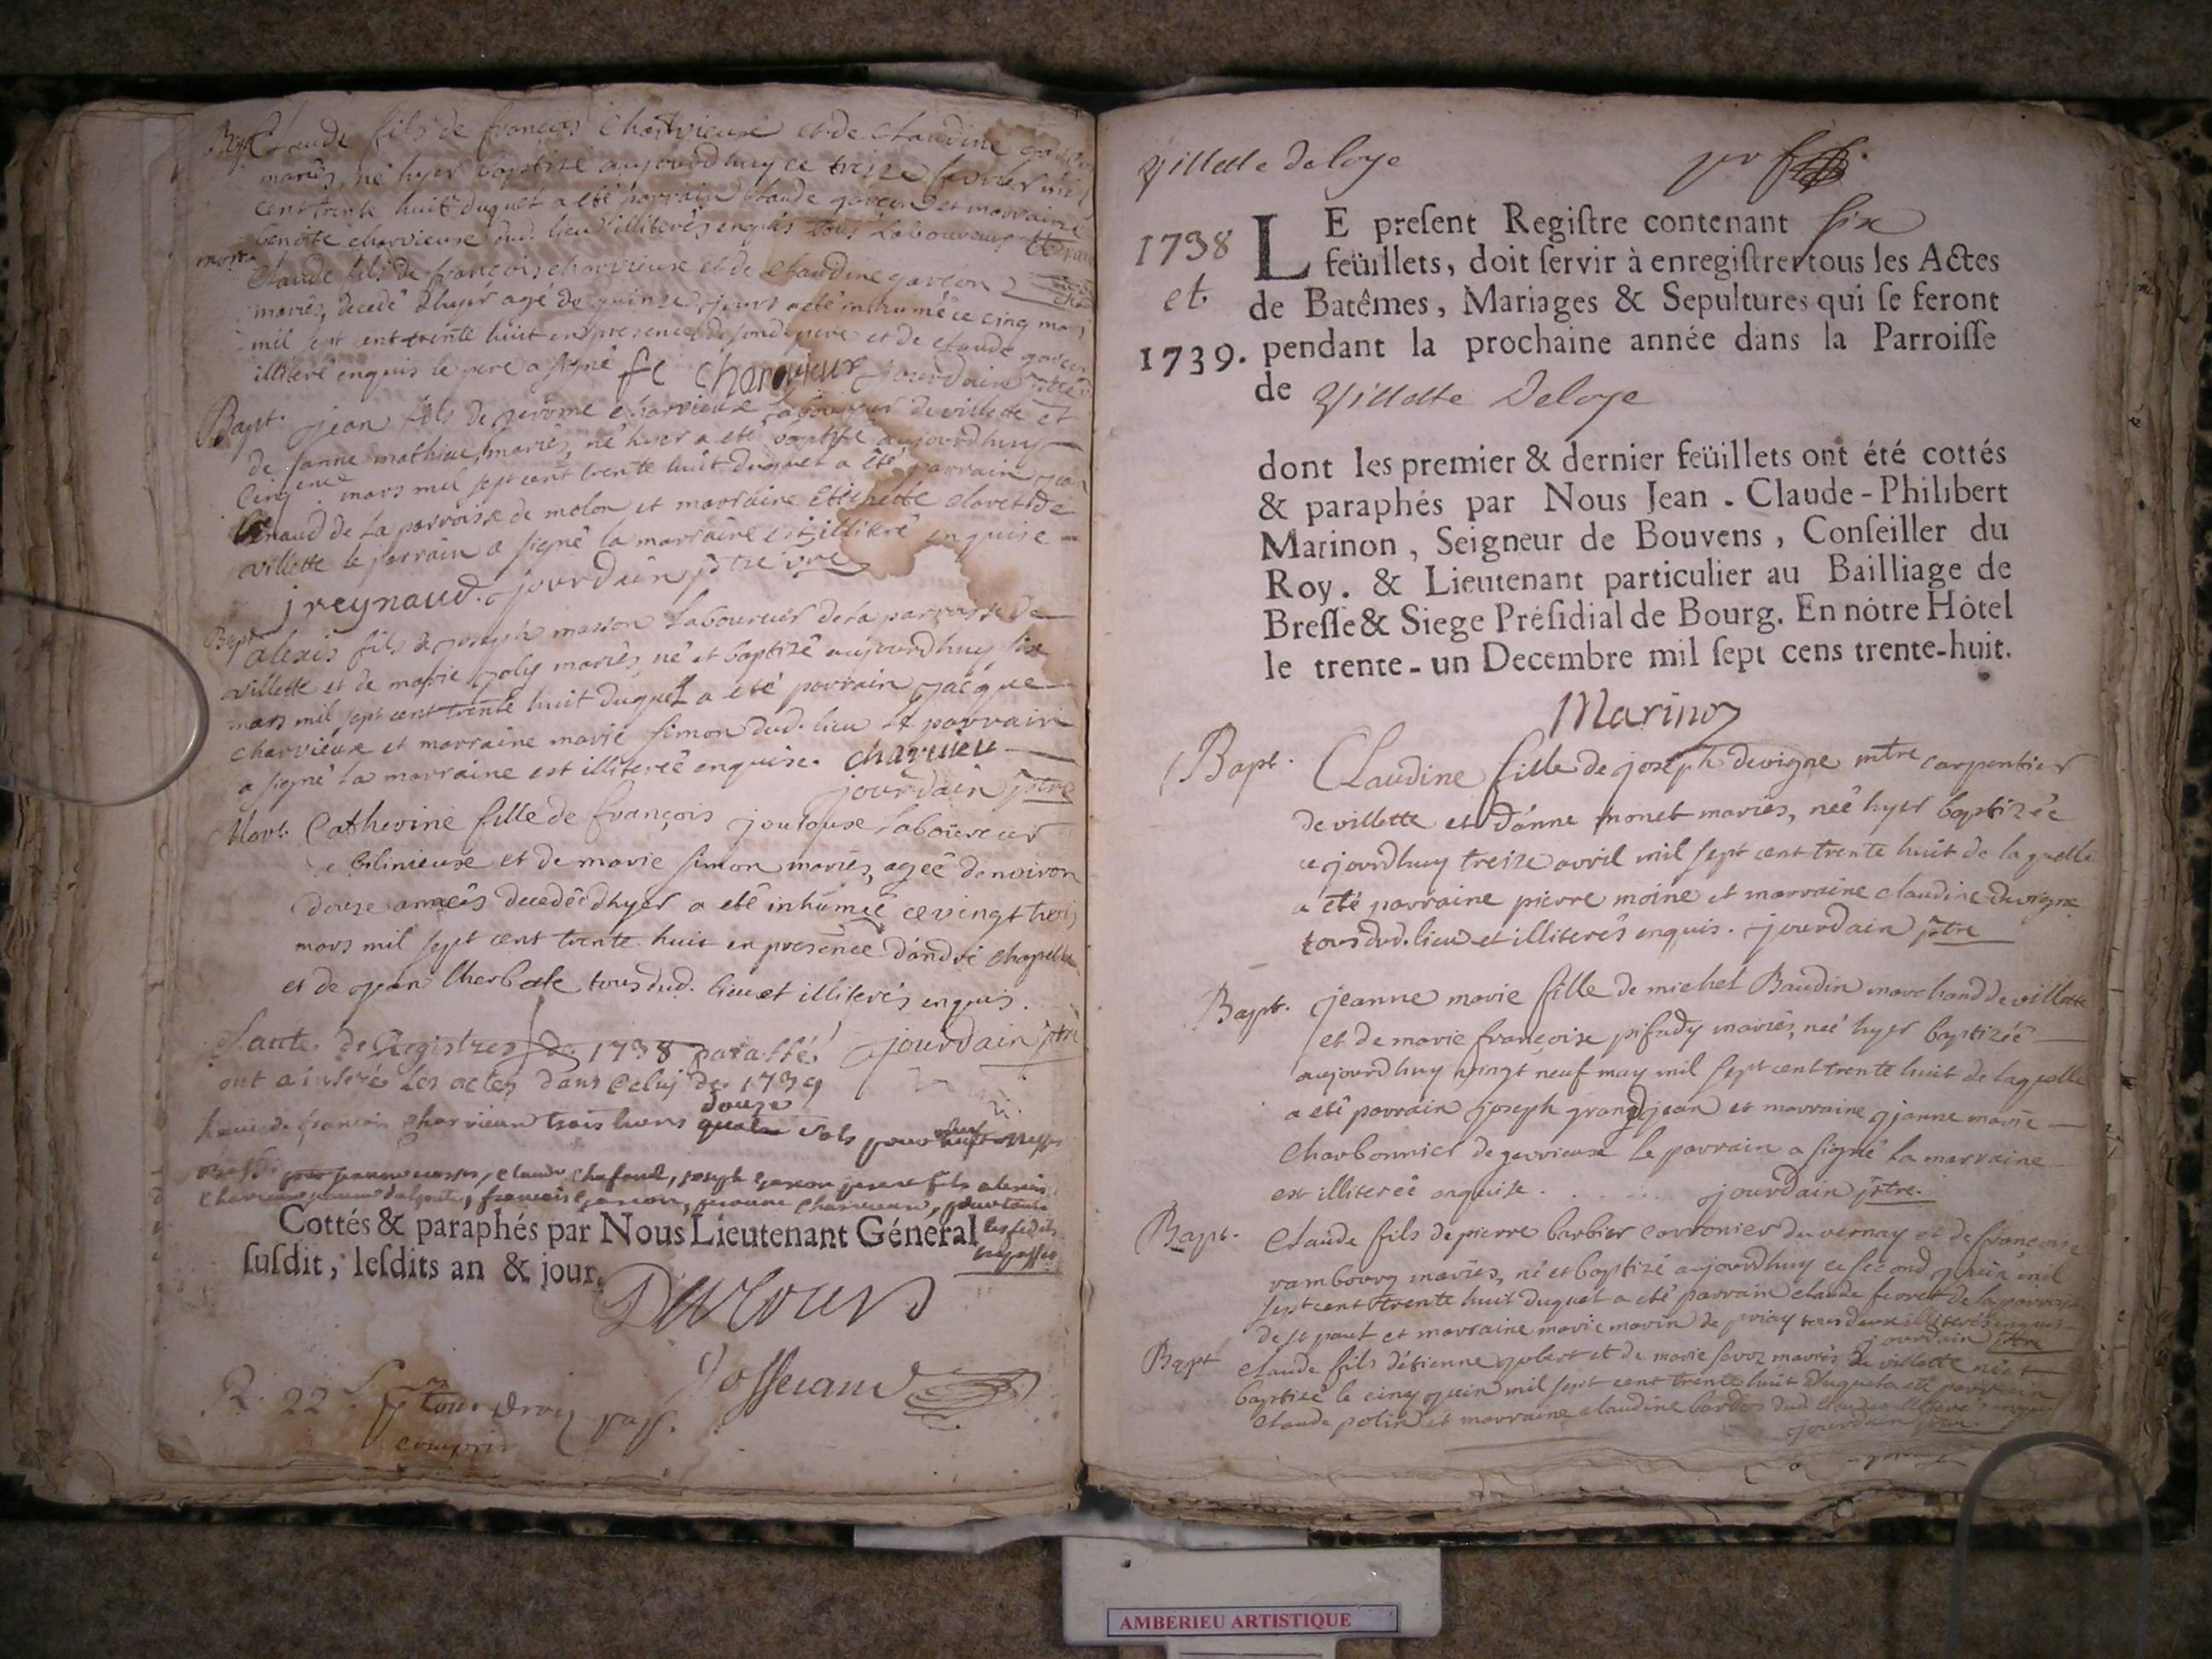 Bapt. Claude fils de françois Charvieux et de Claudine
mariés, né hyer baptisé aujourdhuy ce treize fevrier mil
cent trente huit duquel a eté parrain Claude garcon et marraine
benoite charvieux dud. lieu illiterés enquis tous Laboureurs
mort. Claude fils de françois charvieux et de Claudine garcon
mariés, decedé dhyer agé de quinze jours a eté inhumé ce cinq mars
mil sept cent trente huit en presence de sond. pere et de Claude garcon
illiteré enquis le pere a signé fc Charvieux jourdain ptre
Bapt. jean fils de jerôme charvieux Laboureur de villette et
de janne mathieu, mariés, né hyer a eté baptisé aujourdhuy
cinq mars mil sept cent trente huit duquel a été parrain jean
Renaud de La parroisse de molon et marraine etiennette clavet de
villette le parrain a signé la marraine est illiteré enquise
j reynaud. jourdain ptre
Bapt. alexis fils de joseph masson Laboureur de la parroisse de
villette et de marie joly mariés, né et baptizé aujourdhuy six
mars mil sept cent trente huit duquel a eté parrain jacque
charvieux et marraine marie simon dud. lieu Le parrain
a signé La marraine est illiterée enquise. charvieu
jourdain ptre
Mort. Catherine fille de françois joulouse Laboureur
de bilinieux et de marie simon mariés, agée denviron
douze années decedée dhyer a eté inhumée ce vingt trois
mars mil sept cent trente huit en presence d'andré chapelle
et de jean Cherbate tous dud. lieu et illiterés enquis.
jourdain ptre
faute de Registres de 1738 paraffé
ont a inseré Les actes dans Celuy de 1739
françois charvieux trois livres quatre douze sols pour
Claude Chafaud, joseph
Cottés & paraphés par Nous Lieutenant Géneral
susdit, lesdits an & jour.
Josserand
R. 22
compris
Villette de loye
1738
et
1739.
LE present Registre contenant six
feüillets, doit servir à enregistrer tous les Actes
de Batêmes, Mariages & Sepultures qui se feront
pendant la prochaine année dans la Parroisse
de Villette Deloye
dont les premier & dernier feüillets ont été cottés
& paraphés par Nous Jean-Claude-Philibert
Marinon, Seigneur de Bouvens, Conseiller du
Roy. & Lieutenant particulier au Bailliage de
Bresse & Siege Présidial de Bourg. En nôtre Hôtel
le trente-un Decembre mil sept cens trente-huit.
Marinon
Bapt. Claudine fille de joseph devigne mtre carpentier
de villette et d'anne monet mariés, née hyer baptizée
ce jourdhuy treize avril mil sept cent trente huit de laquelle
a été parraine pierre moine et marraine claudine devigne
tous dud. lieu et illiterés enquis. jourdain ptre
Bapt. jeanne marie fille de michel Baudin marchand de villette
et de marie françoise pifady mariés, née hyer baptizée
aujourdhuy vingt neuf may mil sept cent trente huit de laquelle
a eté parrain joseph grandjean et marraine jeanne marie
Charbonnier de gevrieux Le parrain a signé La marraine
est illiterée enquise. jourdain ptre.
Bapt. Claude fils de pierre barbier carronier du vernay et de françoise
rambourg mariés, né et baptizé aujourdhuy ce second juin mil
sept cent trente huit duquel a eté parrain claude ferret de la parroisse
de st paul et marraine marie marin de priay tous deux illiterés enquis
jourdain ptre
Bapt Claude fils d'etienne jobert et de marie savoz mariés de villette né et
baptizé le cinq juin mil sept cent trente huit duquel a eté parrain
Claude polin et marraine claudine bardet dud. lieu illiterés enquis
jourdain ptre
AMBERIEU ARTISTIQUE